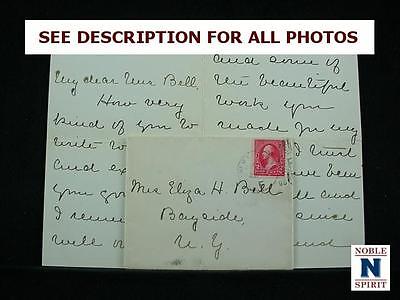 SEE DESCRIPTION FOR ALL PHOTOS
My dear Mrs Bell,
How very
kind of you to
write to
and
you
I
will
and some of
the beautiful
work you
made for my
I trust
been
and
since
and
Mrs Eliza H. Bell
Bayside,
N.Y.
NOBLE
N
SPIRIT